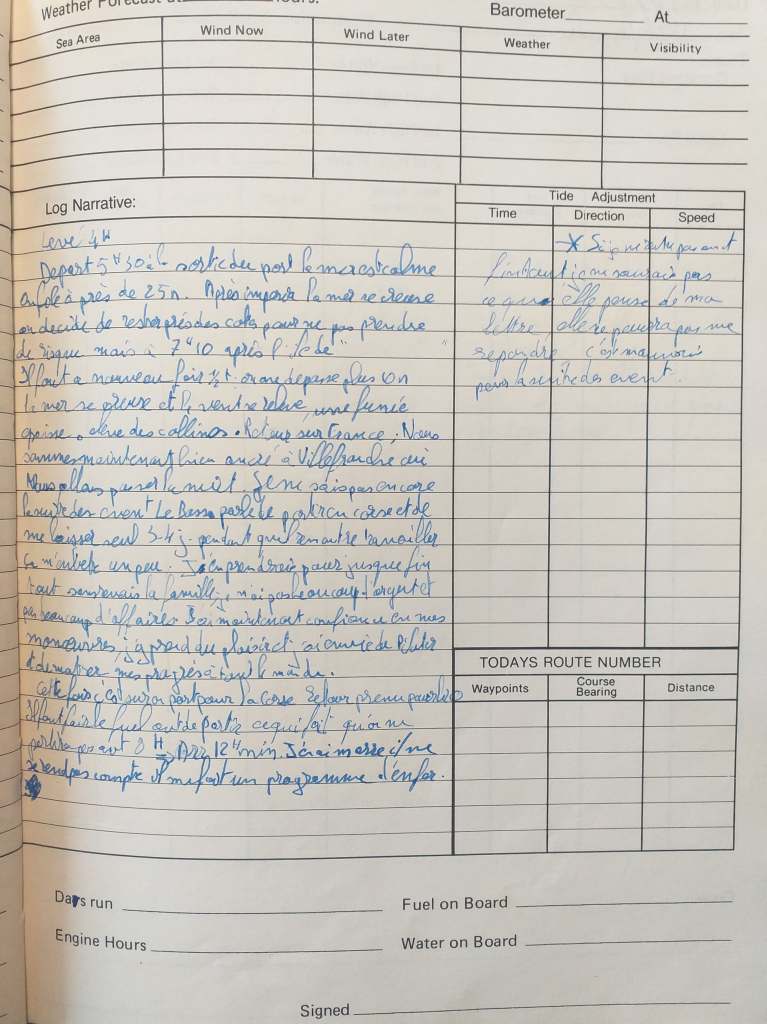 Weather Forecast at Hours.
Barometer At
Sea Area Wind Now Wind Later Weather Visibility
Log Narrative:
Tide Adjustment
Time Direction Speed
Levé 4H
Depart 5H30 à la sortie du port la mer est calme
à près de 25n. Après la mer se creuse
on decide de rester près des cotes pour ne pas prendre
de risque mais à 7H10 après l'
Il faut a nouveau fair ½ t. on ne depasse plus 10n
la mer se creuse et le vent se releve, une fumée
epaisse des collines. Retour sur France, Nous
sommes maintenant bien ancré à Villefranche où
Nous allons passer la nuit. Je ne sais pas encore
la suite des event Le Boss parle de partir en corse et de
me laisser seul 3-4 j. pendant qu'il rentre travailler
ça m'embete un peu. J'en prendrais pour jusque fin
tout sans la famille, j n'ai pas beaucoup d'argent et
pas beaucoup d'affaires J'ai maintenant confiance en mes
manœuvres, j'y prend du plaisir et j'ai envie de Piloter
et de montrer mes progrès à tout le monde.
Cette fois c'est sur on part pour la Corse Retour prevu pour
Il faut faire le fuel avt de partir ce qui fait qu'on ne
partira pas avt 8H Arr 12H min. J'en ai marre il ne
se rend pas compte il me fait un programme d'enfer.
* Si je rentre pas avt
je ne saurais pas
ce qu'elle pense de ma
lettre, elle ne pourra pas me
repondre c'est mauvais
pour la suite des event.
TODAYS ROUTE NUMBER
Waypoints Course Bearing Distance
Days run
Fuel on Board
Engine Hours
Water on Board
Signed